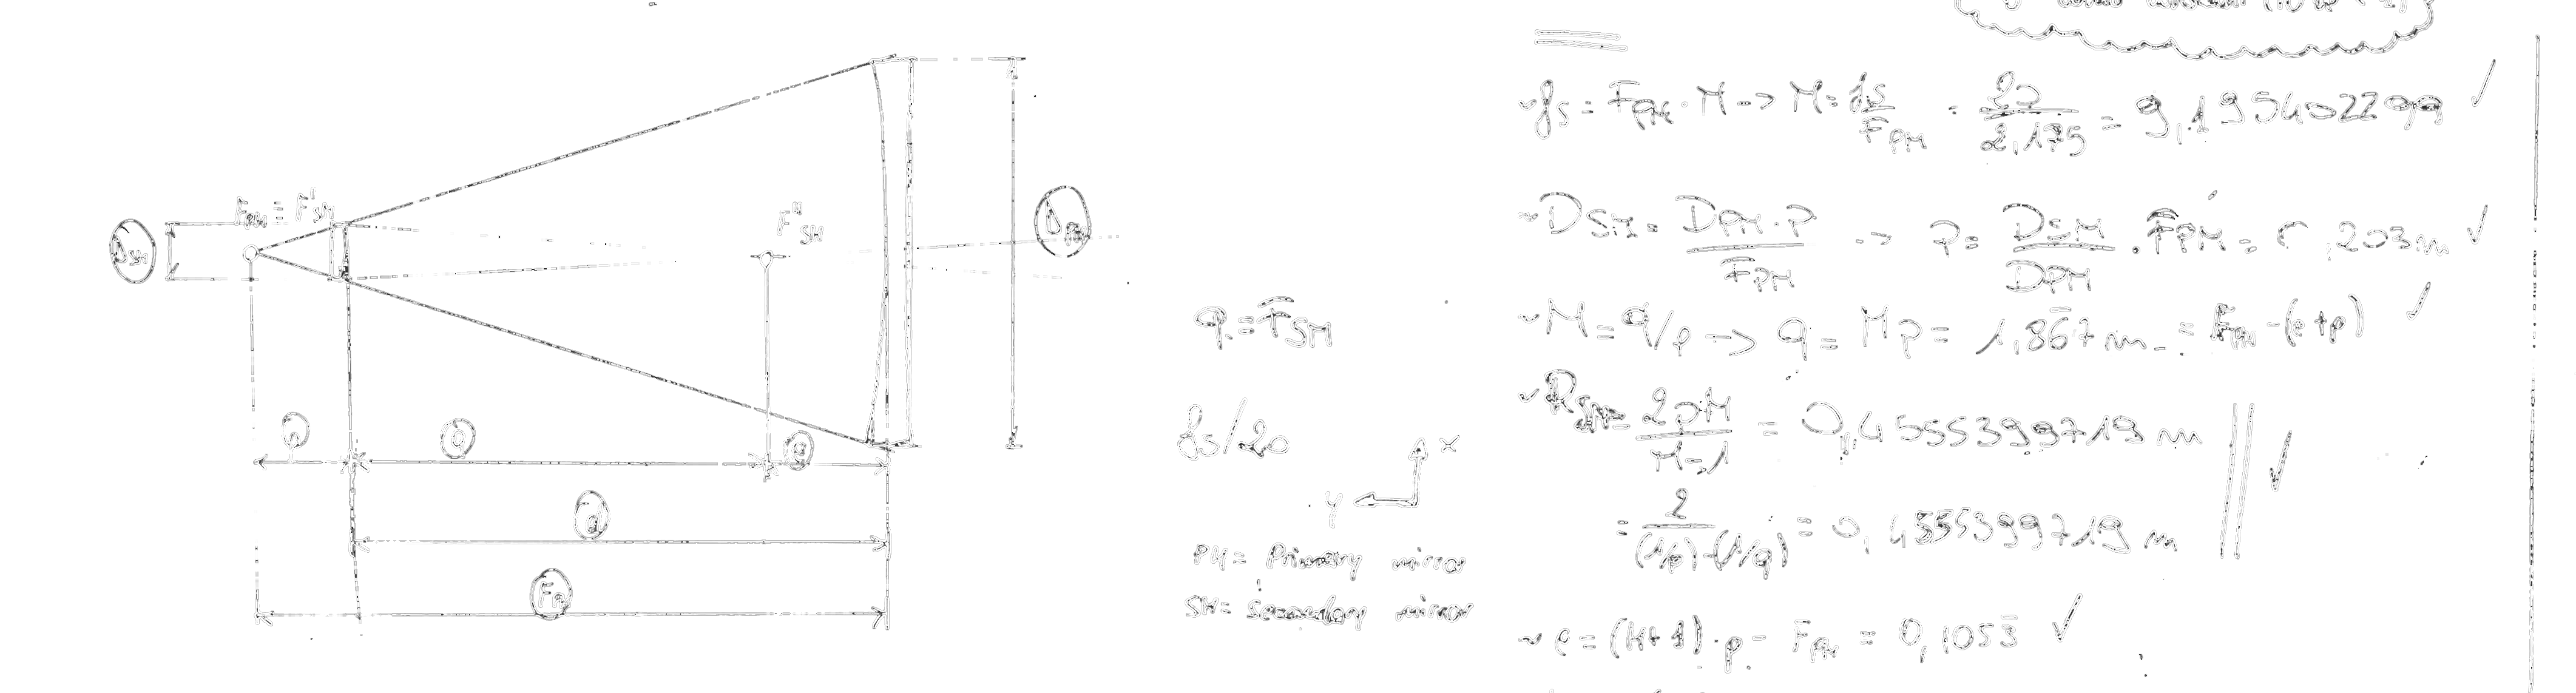 F_PM ≡ F'_SM
F''_SM
D_SM
D_PM
p
q
e
F_P
q = F_SM
fs/20
x
y
PM = Primary mirror
SM = Secondary mirror
fs = F_PM · M -> M = fs/F_PM = 20/2,175 = 9,1954022999 ✓
D_SM = D_PM · P / F_PM -> P = D_SM/D_PM · F_PM = 0,203 m ✓
M = q/p -> q = Mp = 1,867 m = F_PM - (e+p) ✓
R_SM = 2pM/M-1 = 0,4555399719 m ✓
= 2/(1/p)-(1/q) = 0,4555399719 m
e = (M+1) · p - F_PM = 0,1053 ✓